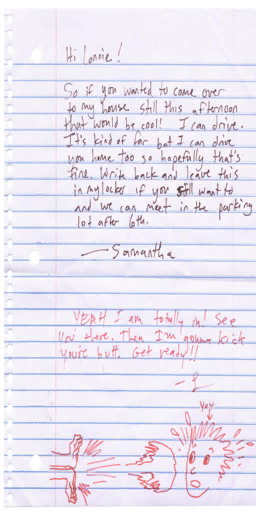 Hi Lonnie!
So if you wanted to come over
to my house still this afternoon
that would be cool! I can drive.
It's kind of far but I can drive
you home too so hopefully that's
fine. Write back and leave this
in my locker if you still want to
and we can meet in the parking
lot after 6th.
—Samantha
YEAH I am totally in! See
you there. Then I'm gonna kick
you're butt. Get ready!!
-L
YOU